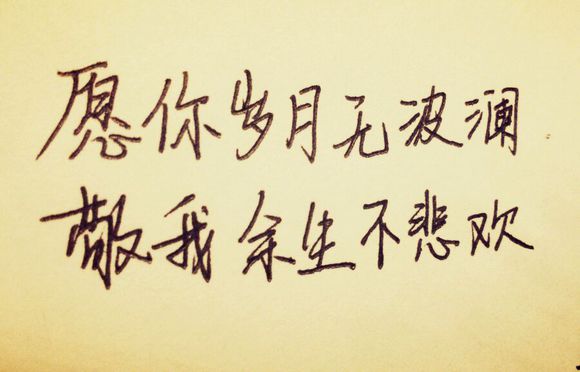 愿你岁月无波澜
敬我余生不悲欢